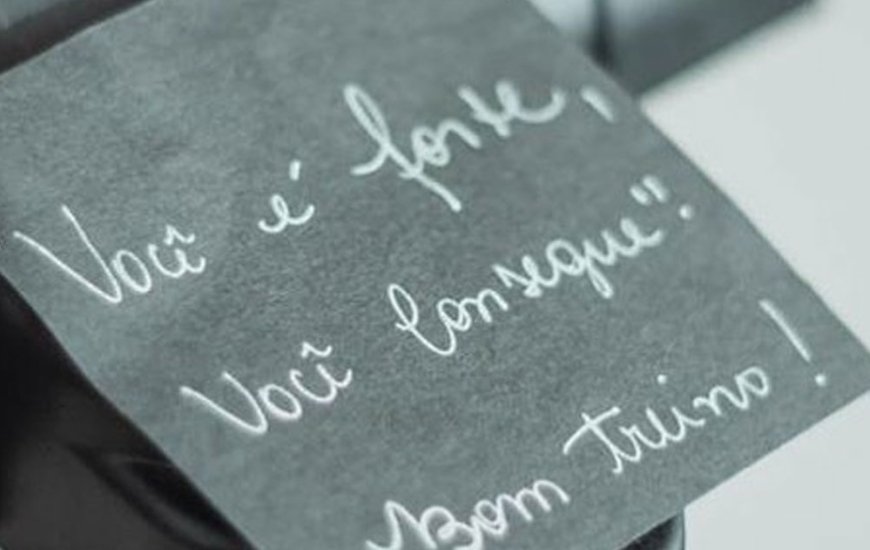 Você é forte,
Você consegue".
Bom treino!